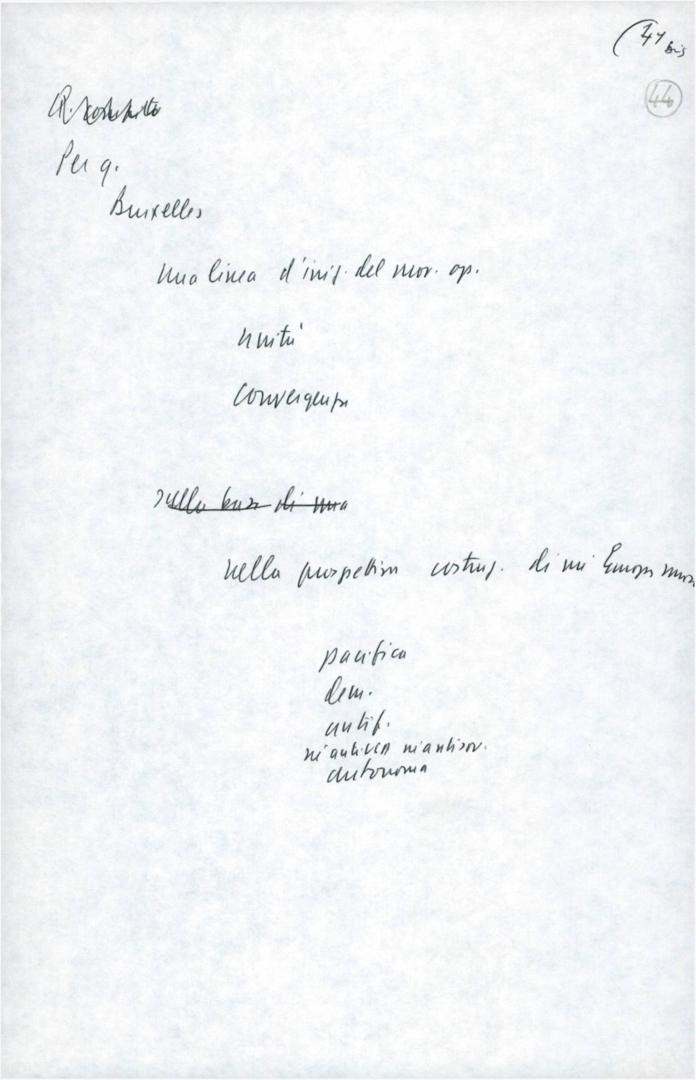 (41 bis
44
Per q.
Bruxelles
una linea d'iniz. del mov. op.
unità
convergenza
sulla base di una
nella prospettiva costruz. di un' Europa nuova
pacifica
dem.
antif.
né antiUSA né antisov.
autonoma